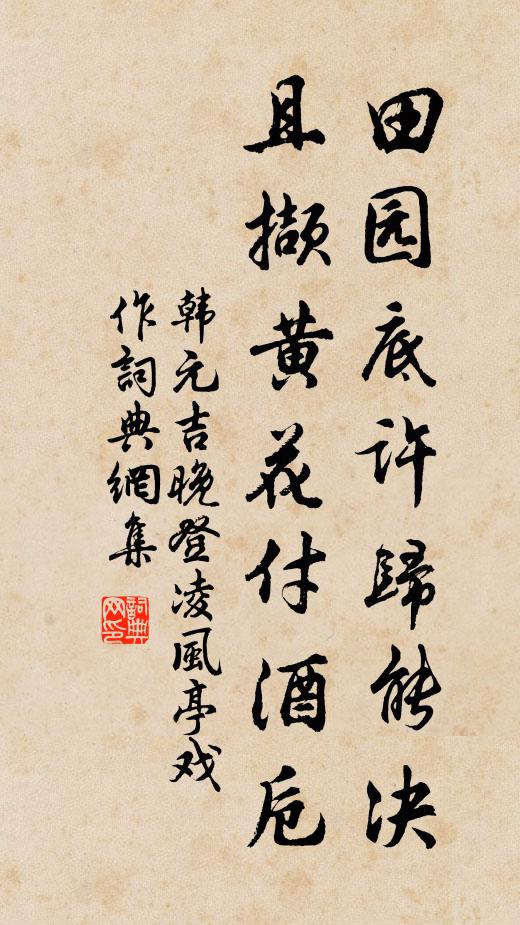 田园底许歸能决
且撷黄花付酒卮
韩元吉晚登凌風亭戏
作詞典網集
詞典网印